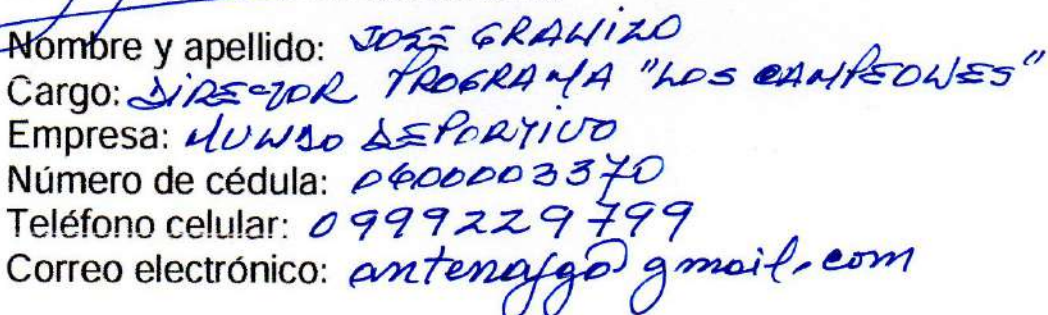 Nombre y apellido: JOSE GRANIZO
Cargo: DIRECTOR PROGRAMA "LOS CAMPEONES"
Empresa: MUNDO DEPORTIVO
Número de cédula: 0600003370
Teléfono celular: 0999229799
Correo electrónico: antenajg@gmail.com